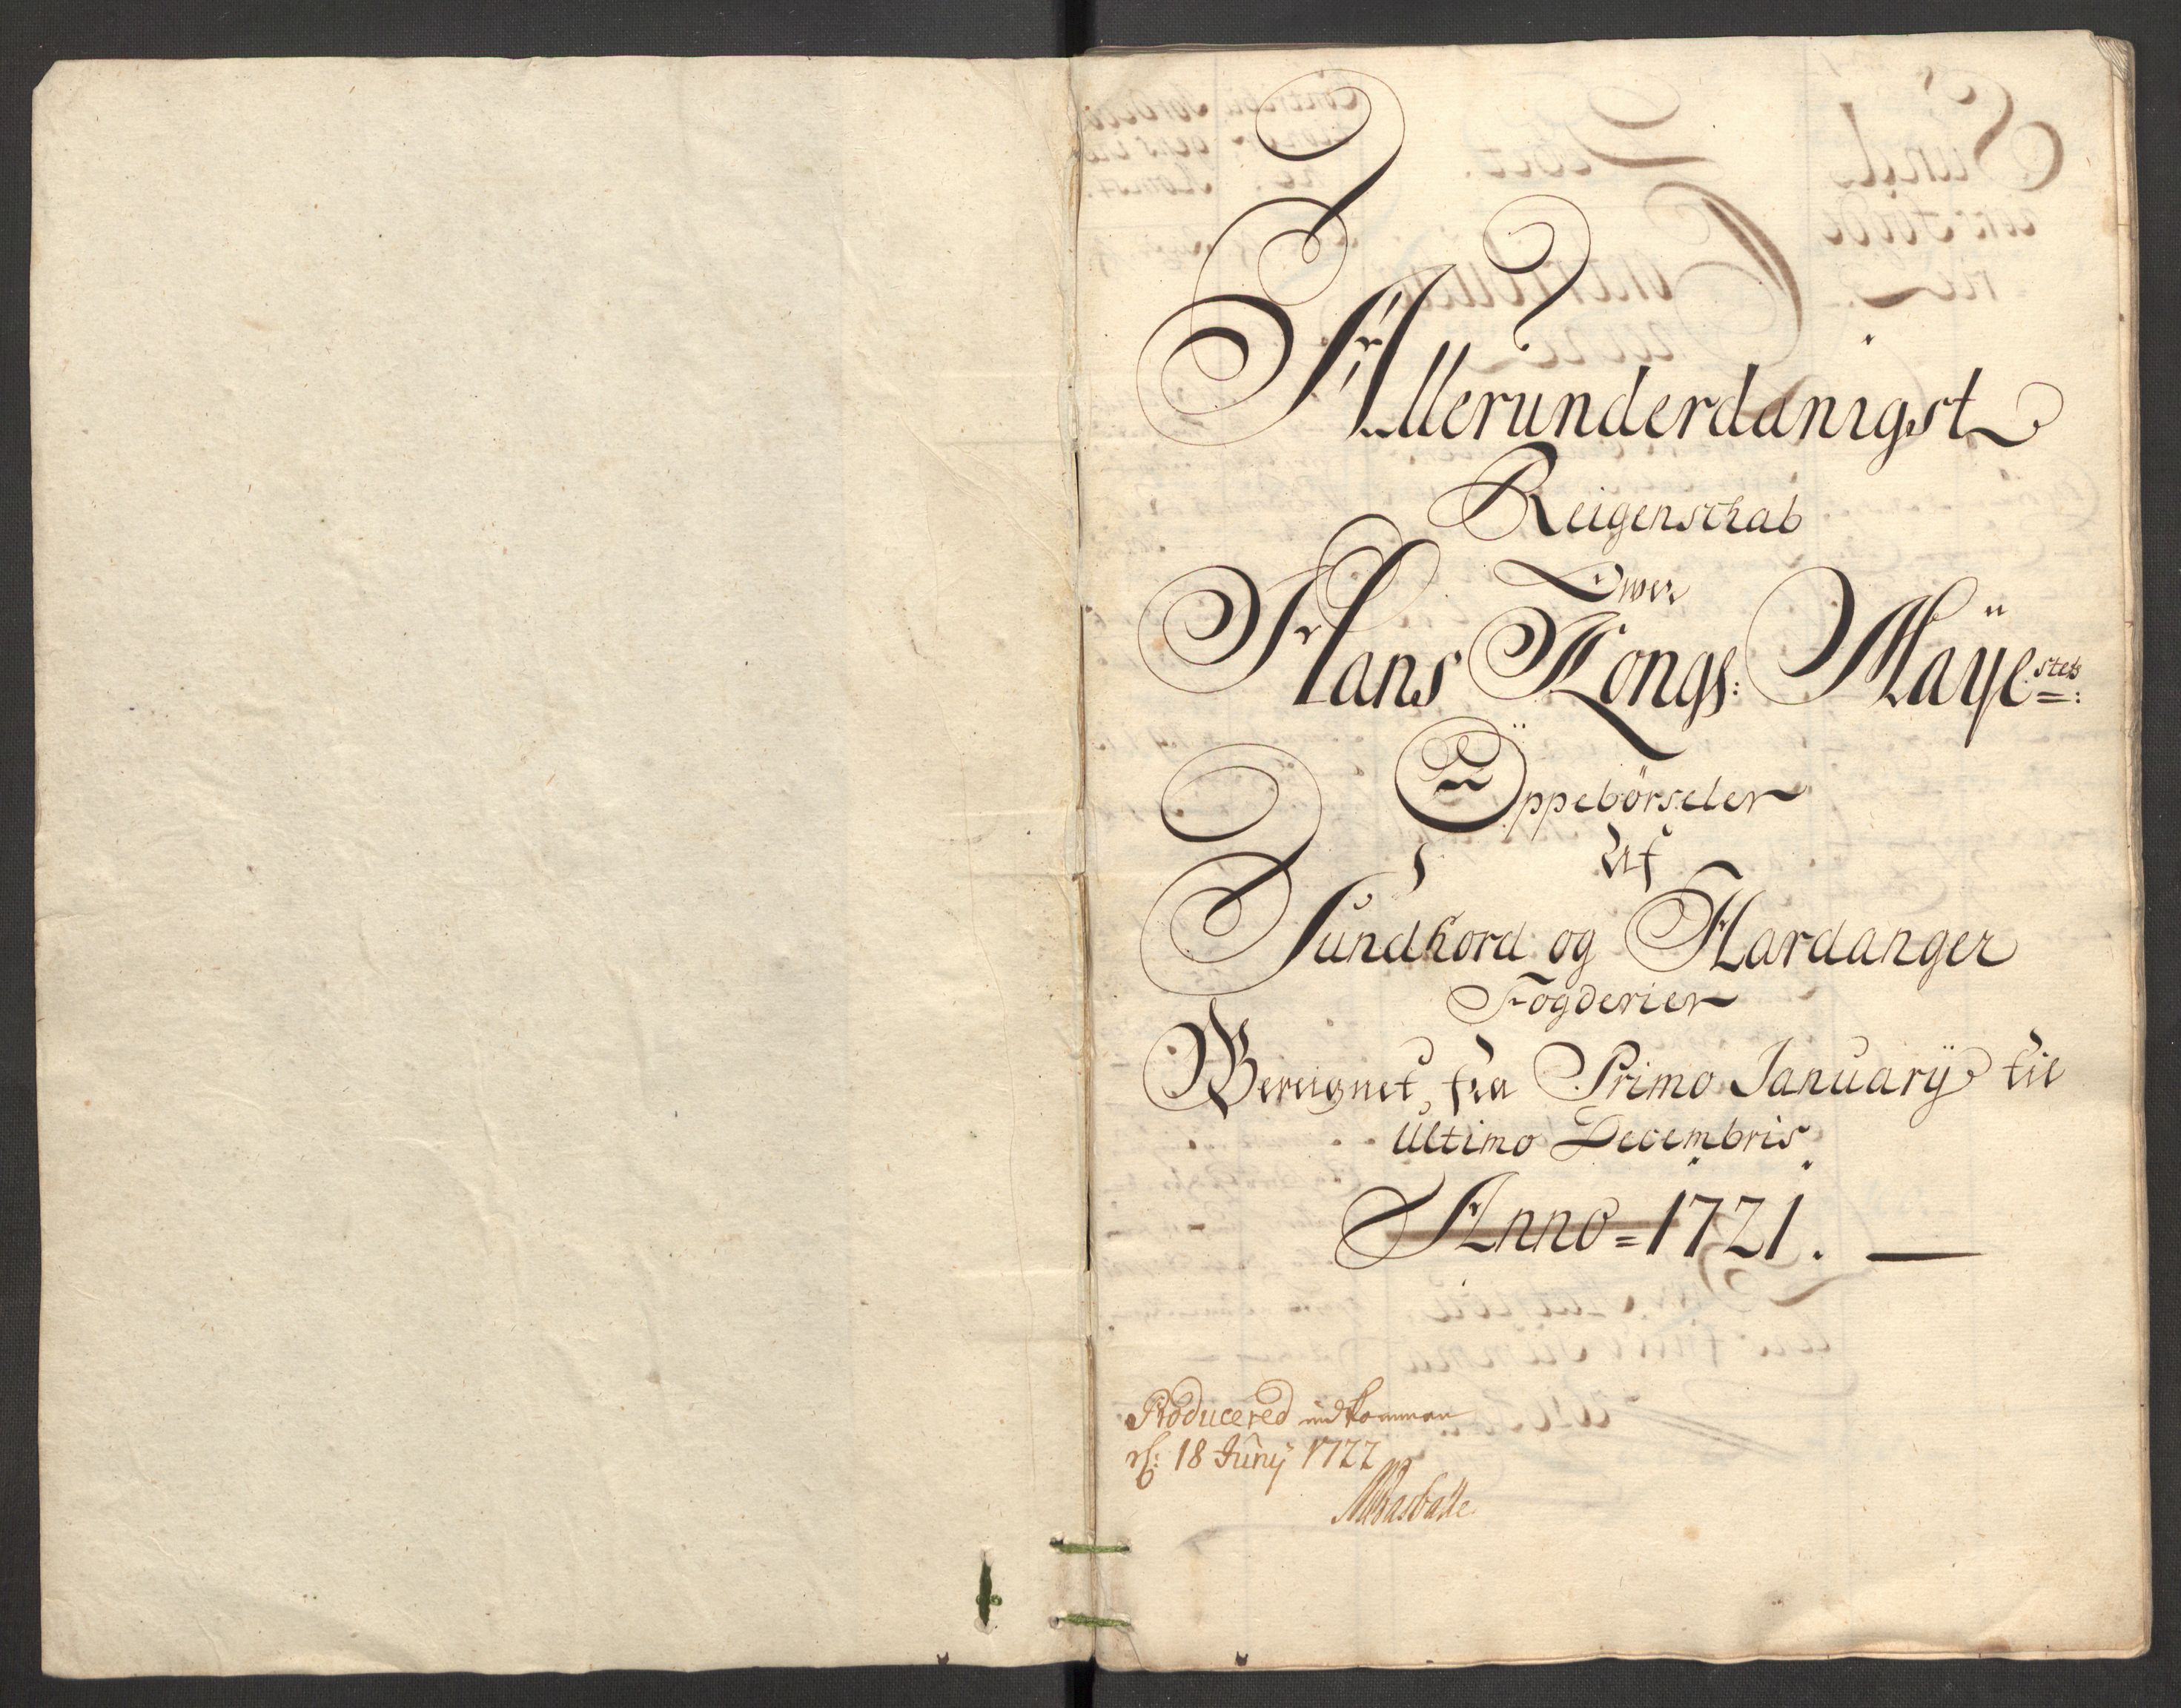 Allerunderdanigst
Reigenskab
Over
Hans Kongs: Maÿe<sup>stets</sup>:
Oppebörseler
Af
Sundhord og Hardanger
Fogderier
Bereignet, fra Primo Januarÿ til
Ultimo Decembris
Anno = 1721.
Producered indkommen
d: 18 Junÿ 1722